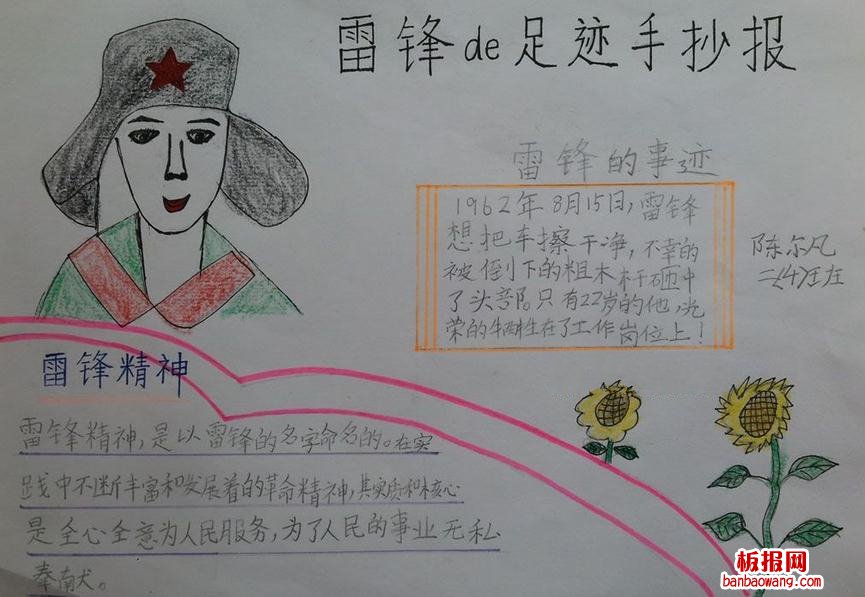 雷锋de足迹手抄报
雷锋的事迹
1962年8月15日,雷锋
想把车擦干净,不幸的
被倒下的粗木杆砸中
了头部只有22岁的他,光
荣的牺牲在了工作岗位上!
陈尔凡
二(4)班
雷锋精神
雷锋精神,是以雷锋的名字命名的。在实
践中不断丰富和发展着的革命精神,其实质和核心
是全心全意为人民服务,为了人民的事业无私
奉献。
板报网
banbaowang.com